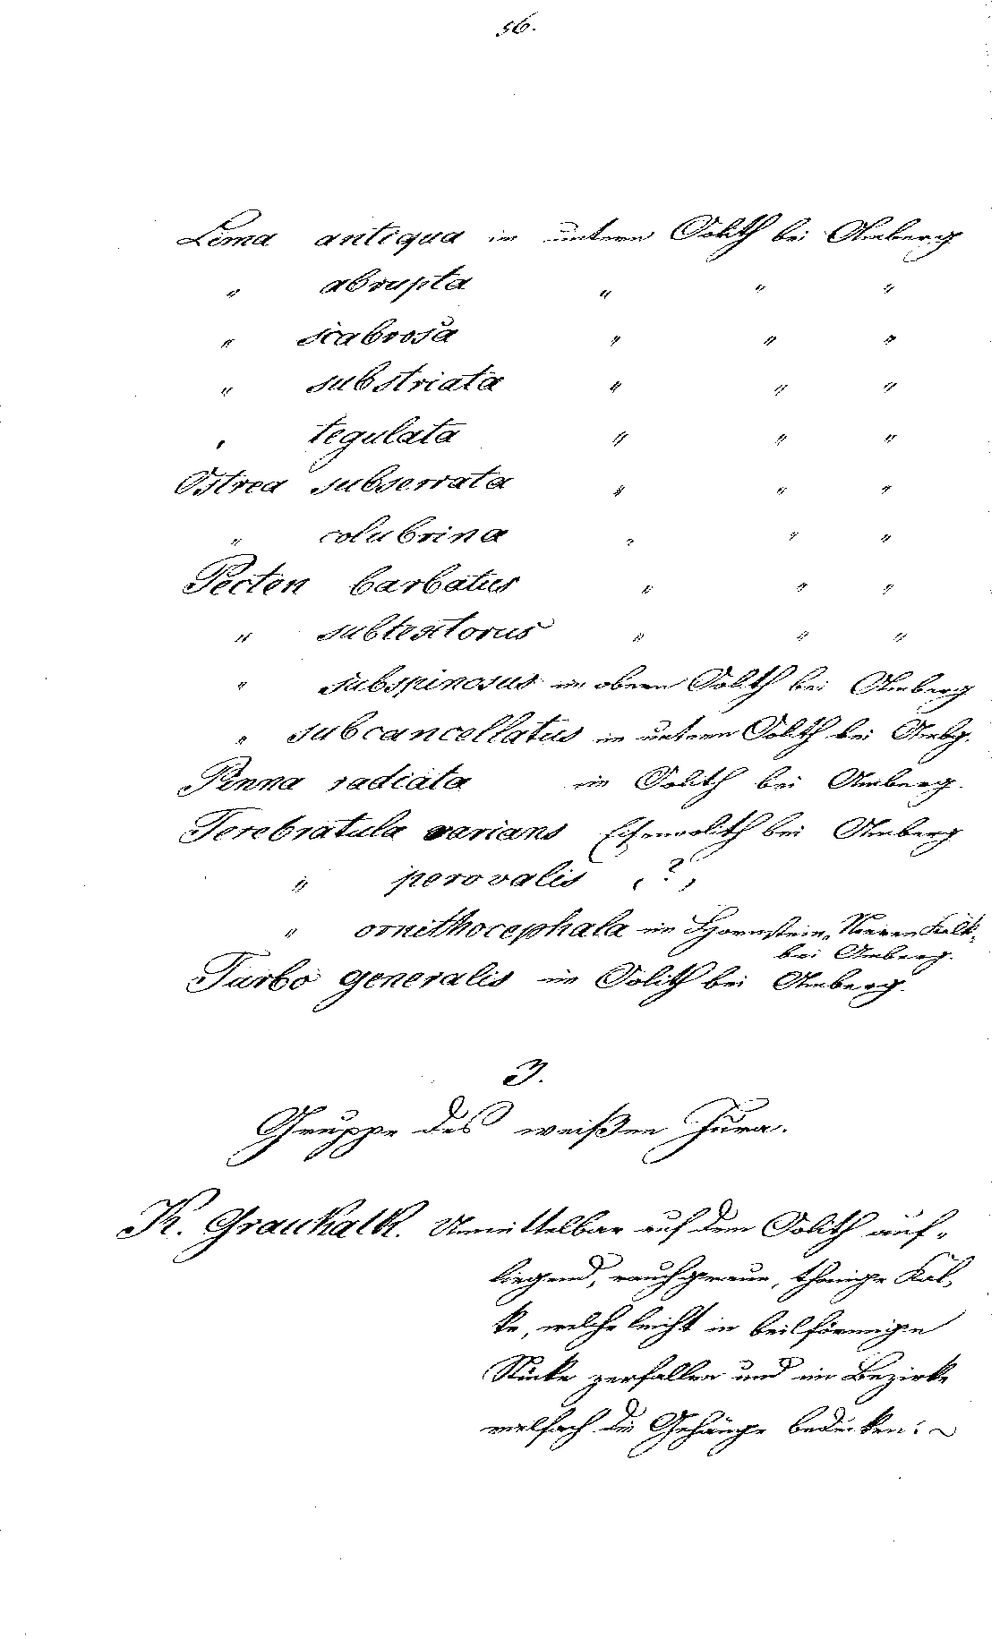 56.
Lima antiqua im untern Oolith bei Amberg
" abrupta " " "
" scabrosa " " "
" substriata " " "
" tegulata " " "
Ostrea subserrata " " "
" colubrina " " "
Pecten barbatus " " "
" subtextorius " " "
" subspinosus im obern Oolith bei Amberg
" subcancellatus im untern Oolith bei Ambg.
Pinna radiata im Oolith bei Amberg.
Terebratula varians Eisenoolith bei Amberg
" perovalis (?)
" ornithocephala im Hornstein, Kalk-
bei Amberg.
Turbo generalis im Oolith bei Amberg.
3.
Gruppe des weißen Jura.
K. Graukalk. Unmittelbar auf dem Oolith auf-
liegend, rauchgraue, thonige Kal-
ke, welche leicht in beilförmige
Stücke zerfallen und im Bezirke
vielfach die Gehänge bedecken: